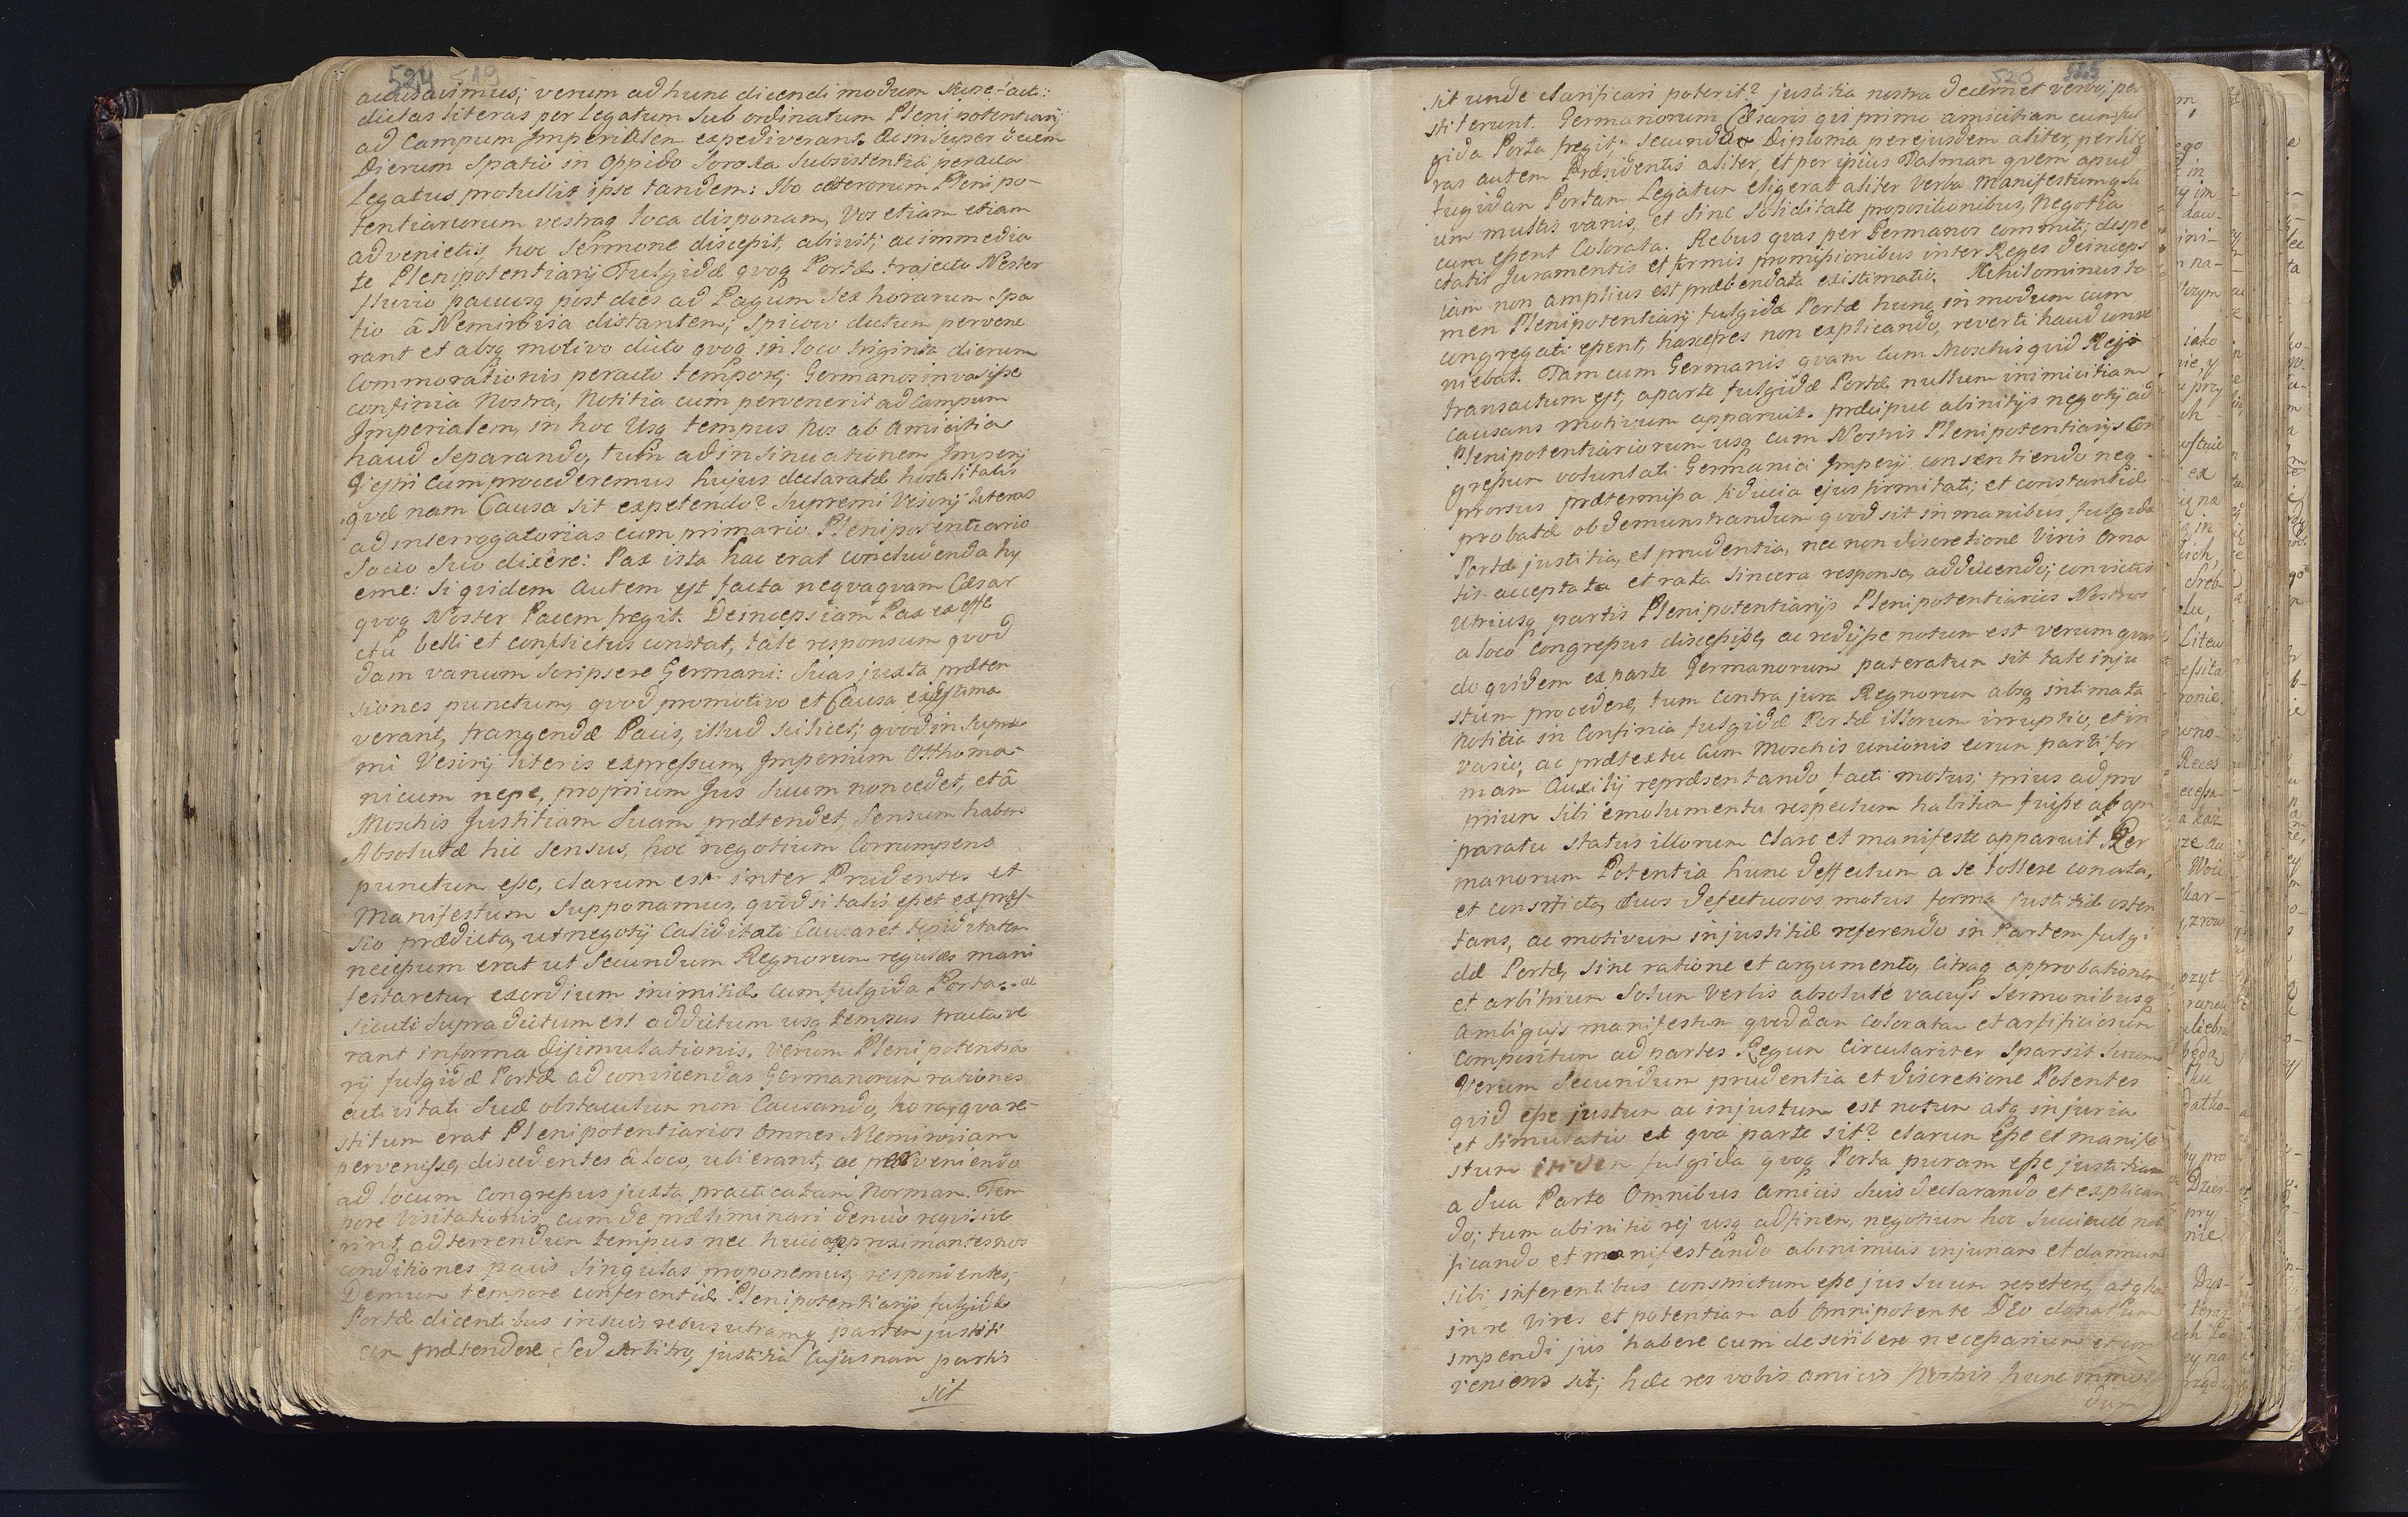 524 519
accusavimus; verum ad hunc dicendi modum supra-
dictas literas per Legatum Subordinatum Plenipotentiarij
ad Campum Imperialem expediverant. ac insuper decem
Dierum Spatio in Oppido Soroka Subsistentia peracta
Legatus protullit ipse tandem: Ibo caeterorum Plenipo-
tentiariorum vestraq loca disponam, Vos etiam etiam
advenietis, hoc Sermone discessit, abivit; ac immedia
te Plenipotentiarij Fulgidæ quoq Portæ trajecto Nester
fluvio paucosq post dies ad Pagum Sex horarum Spa
tio â Nemirovia distantem, Spicow dictum pervene
rant et absq motivo dicto quoq in loco triginta dierum
Commorationis peracto tempore; Germanos invasisse
confinia Nostra, Notitia cum pervenerit ad Campum
Imperialem, in hoc Usq tempus Nos ab Amicitia
haud Separando, tum ad insinuationem Imperij
Vestri Cum procederemus hujus declaratæ hostilitatis
quæ nam Causa sit expetendo? Supremi Vesirij literas
ad interrogatorias cum primario Plenipotentiario
Socio Suo dixêre: Pax ista hac erat concludenda hy
eme: Si quidem autem est facta nequaquam Cæsar
quoq Noster Pacem fregit. Deinceps iam Pax ex effe
ctu belli et conflictus constat, tale responsum quod
dam vanum Scripsere Germani: Suas juxta præten
siones punctum, quod pro motivo et Causa existima
verant, frangendæ Pacis, illud scilicet; quod in Supre
mi Vesirij literis expressum, Imperium Otthoma-
nicum nepe, proprium Jus Suum non cedet, et â
Moschis Justitiam Suam prætendet, Sensum habens
Absolutæ hic Sensus, hoc negotium Corrumpens
punctum esse, clarum est inter Prudentes et
Manifestum Supponamus, quod si talis esset expres-
sio prædicta, ut negotij Caliditati Causaret tepiditatem
necessum erat ut Secundum Regnorum regulas mani
festaretur exordium inimitiæ cum fulgida Porta. ac
sicuti Supra dictum est ad dictum usq tempus tractave
rant in forma disimulationis. Verum Plenipotentia
rij fulgidæ Portæ ad convicendas Germanorum rationes
activitati Suæ obstaculum non Causando, hora, qva re-
stitum erat Plenipotentiarios Omnes Nemiroviam
pervenisse, discedentes â loco, ubi erant, ac perveniendo
ad locum Congressus juxta practicatam Norman. Tem
pore Visitationis, cum de præliminari denuo requisive
rint, ad terrendum tempus nec huic approximantes nos
conditiones pacis Singulas proponemus, respondentes;
Demum tempore conferentiæ Plenipotentiarijs fulgidæ
Portæ dicentibus in suis rebus utramq partem justiti
am prætendere; Sed Arbitro, justitia Cujusnam partis
sit
520 525
sit unde clarificari poterit? justitia nostra decernet verbo, per
stiterunt. Germanorum Cæsaris qui primo amicitian cum ful
gida Porta fregit: Secundo Diploma per ejusdem aliter, per lite
ras autem Præsidentis aliter, et per ipsius Dalman quem apud
fugidan Portam Legatum eligerat aliter Verba Manifestum
um multis vanis, et Sine Soliditate propositionibus, Negotia
cum essent Colorata. Rebus quas per Germanos commit; despe
ctatis Juramentis et firmis promissionibus inter Reges deinceps
iam non amplius est præbendata existimatio. Nihilominus ta
men Plenipotentiarij fulgidæ Portæ hunc in modum cum
congregati essent, hasce res non explicando, reverti haud conve
niebat. Tam cum Germanis quam cum Moschis quid Rejs
transactum est, a parte fulgidæ Portæ, nullum inimicitiam
Causans motivum apparuit. præcipue ab initijs negotij ad
Plenipotentiariorum usq cum Nostris Plenipotentiarijs Con
gressum voluntati Germanici Imperij consentiendo neg
prorsus prætermissa fiducia ejus firmitati; et constantiæ
probatæ ob demunstrandum quod sit in manibus fulgidæ
Portæ justitia, et prudentia, nec non discretione Viris orna
tis. acceptata et rata Sincera responsa, adducendo; convictis
Utriusq partis Plenipotentiarijs Plenipotentiarios Nostros
a loco Congressus discessisse, ac redijsse notum est verum quan
do quidem ex parte Germanorum pateratur sit tale inju
stum procedere, tum Contra jura Regnorum absq intimata
Notitia in Confinia fulgidæ Portæ illorum irruptio, et in
vasio, ac prætextu Cum Moschis unionis eorum parti for
mam Auxilij repræsentando facti motus; prius ad pro
prium Sibi emolumentu respectum habitum fuisse ab ap
paratu status illorum Clare et manifeste apparuit Ger
manorum Potentia hunc deffectum a se tollere conata,
et constricta, Suos defectuosos motus forma justitiæ osten
tans, ac motivum injustitiæ referendo in Partem fulgi-
dæ Portæ, sine ratione et argumento, Citraq approbationem
et arbitrium Solum Verbis absolutè vacuis Sermonibusq
Ambiguis manifestum quoddam Coloratam et artificiosum
Compositum ad partes Regum Circulariter Sparsit Suum
Verum Secundum prudentia et discretione Potentes
quid esse justum ac injustum est notum atq injuria
et Simulatio ex qva parte sit? clarum esse et manife
stum fulgida quoq Porta puram esse justitiam
a Sua Parte Omnibus Amicis Suis declarando et explican
do; tum ab initio rej usq ad finem, negotium hoc Succincte not
ificando et manifestando ab inimicis injuriam et damnum
sibi inferentibus constrictum esse jus Suum repetere, atq hac
in re Vires et potentiam ab Omnipotente DEO donatam
impendi jus habere cum describere necessarium et con
veniens sit; hæc res vobis amicis Nostris hunc in mo
dum